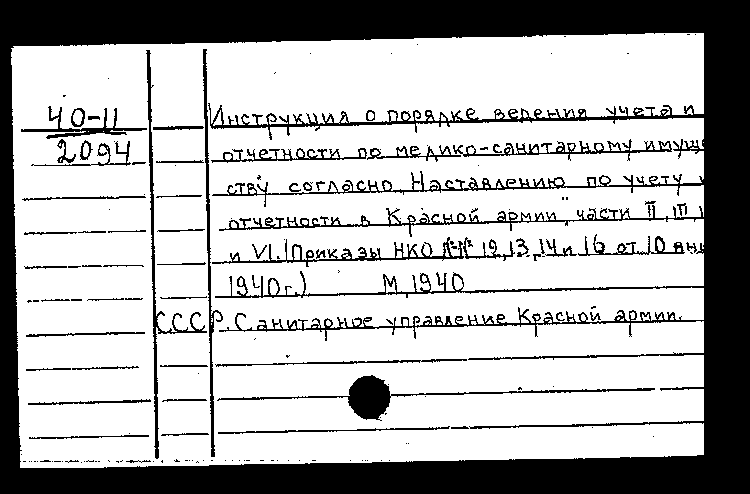 40-11
2094
Инструкция о порядке ведения учета и
отчетности по медико-санитарному имуще
ству согласно „Наставлению по учету и
отчетности в Красной армии", части II, III,
и VI. (Приказы НКО №№ 12, 13, 14 и 16 от 10 янв
1940г.) М, 1940
С.С.С.Р. Санитарное управление Красной армии.